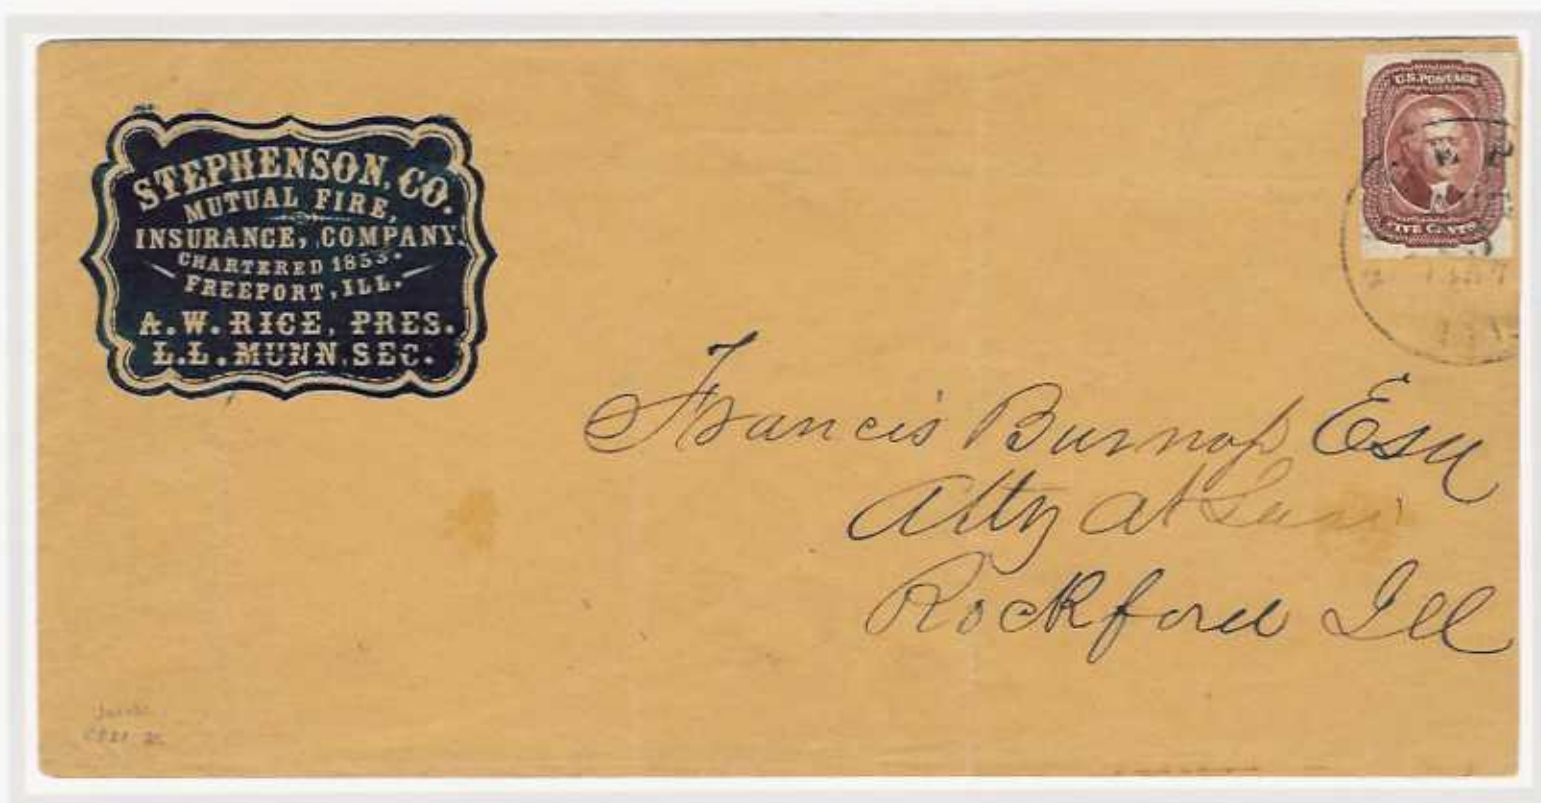 STEPHENSON. CO.
MUTUAL FIRE,
INSURANCE, COMPANY.
CHARTERED 1853.
FREEPORT, ILL.
A. W. RICE, PRES.
L. L. MUNN, SEC.
U.S. POSTAGE
FIVE CENTS
Francis Burnap Esq
Atty at Law
Rockford Ill